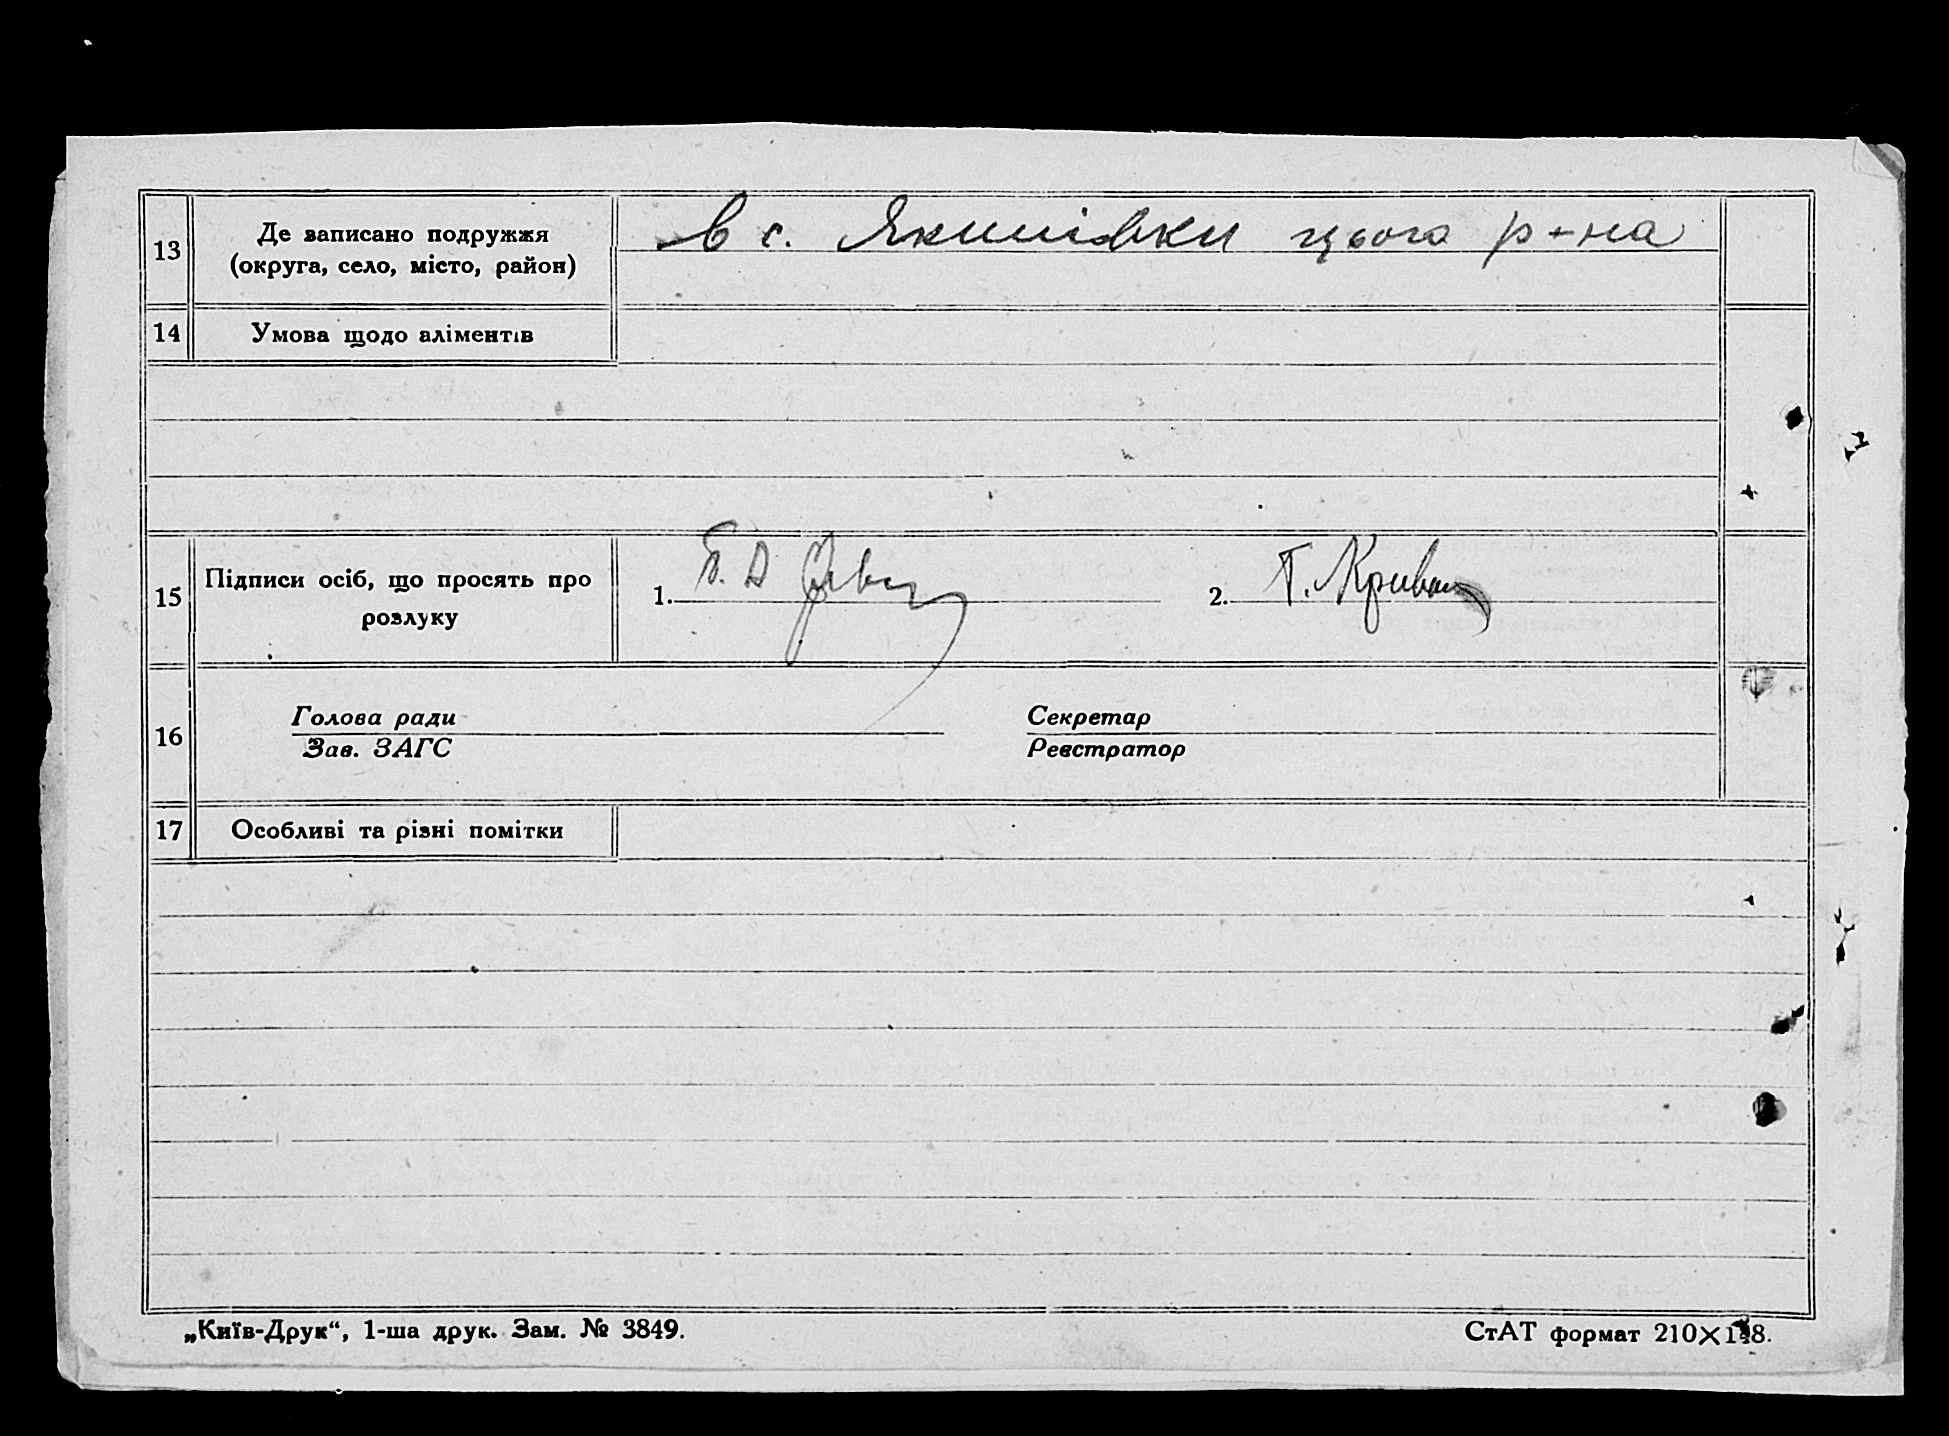 13 Де записано подружжя
(округа, село, місто, район)
в с. Якишівки цього р-на
14 Умова щодо аліментів
15 Підписи осіб, що просять про
розлуку
1.
2. Г. Крива
16 Голова ради
Зав. ЗАГС
Секретар
Реєстратор
17 Особливі та різні помітки
„Київ-Друк“, 1-ша друк. Зам. № 3849.
СтАТ формат 210×148.